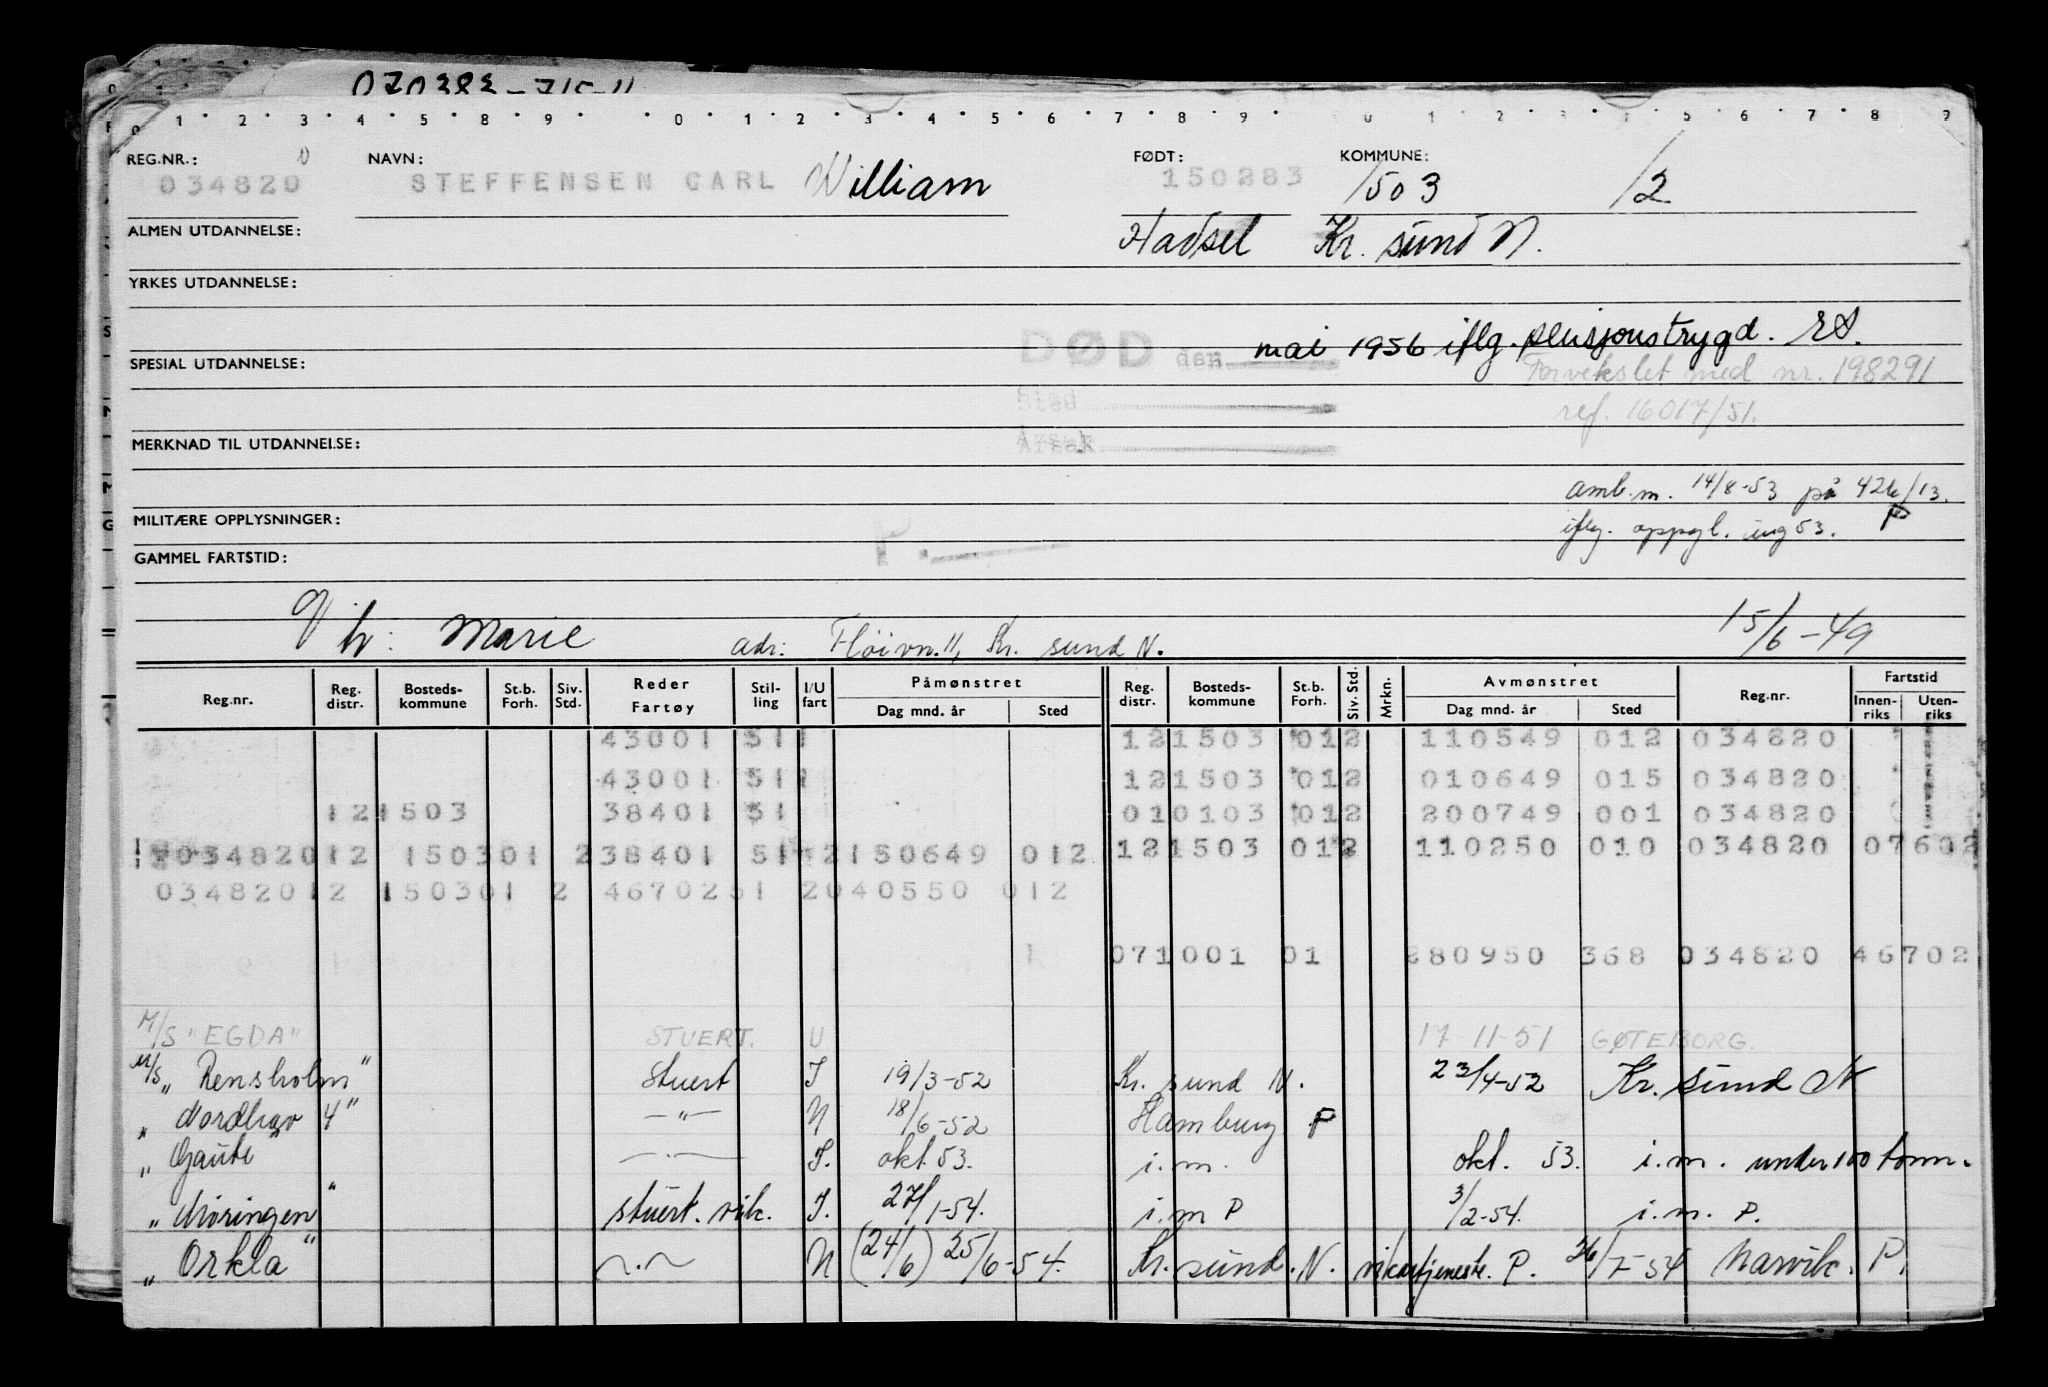 070383-715-11
0 1 2 3 4 5 8 9 0 1 2 3 4 5 6 7 8 9 0 1 2 3 4 5 6 7 8 9
REG.NR.: NAVN: FØDT: KOMMUNE:
034820 STEFFENSEN CARL William 150283 1503 12
ALMEN UTDANNELSE: Hadsel Kr. sund N.
YRKES UTDANNELSE:
DØD den mai 1956 iflg. pensjonstrygd. RS.
SPESIAL UTDANNELSE: Forvekslet med nr. 198291
Sted ref. 16017/51.
MERKNAD TIL UTDANNELSE: Årsak
amb.m. 14/8-53 på 426/13.
MILITÆRE OPPLYSNINGER: P. iflg. oppgl. aug 53. P
GAMMEL FARTSTID:
h: Marie adr: Fløivn. 11, Kr. sund N. 15/6-49
Reg.nr. Reg. distr. Bosteds- kommune St.b. Forh. Siv. Std. Reder Fartøy Stil- ling I/U fart Påmønstret Dag mnd. år Sted Reg. distr. Bosteds- kommune St.b. Forh. Siv. Std. Mrkn. Avmønstret Dag mnd. år Sted Reg.nr. Fartstid Innen- riks Uten- riks
43001 511 121503 012 110549 012 034820
43001 511 121503 012 010649 015 034820
121503 38401 51 010103 012 200749 001 034820
03482012 150301 238401 51 12150649 012 121503 012 110250 010 034820 07602
03482012 150301 2 4670251 2040550 012
071001 01 280950 368 034820 46702
M/S "EGDA" STUERT. U 17-11-51 GØTEBORG.
M/S "Rensholm" Stuert I 19/3-52 Kr. sund N. 23/4-52 Kr. sund N
" Nordhav 4" —"— N 18/6-52 Hamburg P
" Gaute" —"— I. okt. 53. i.m. okt. 53. i.m. under 100 tonn.
" Møringen" stuert. vik. I. 27/1-54. i.m P 3/2-54. i.m. P.
" Orkla" —"— N (24/6) 25/6-54. Kr. sund. N. vikartjeneste. P. 26/7-54 Narvik. P.